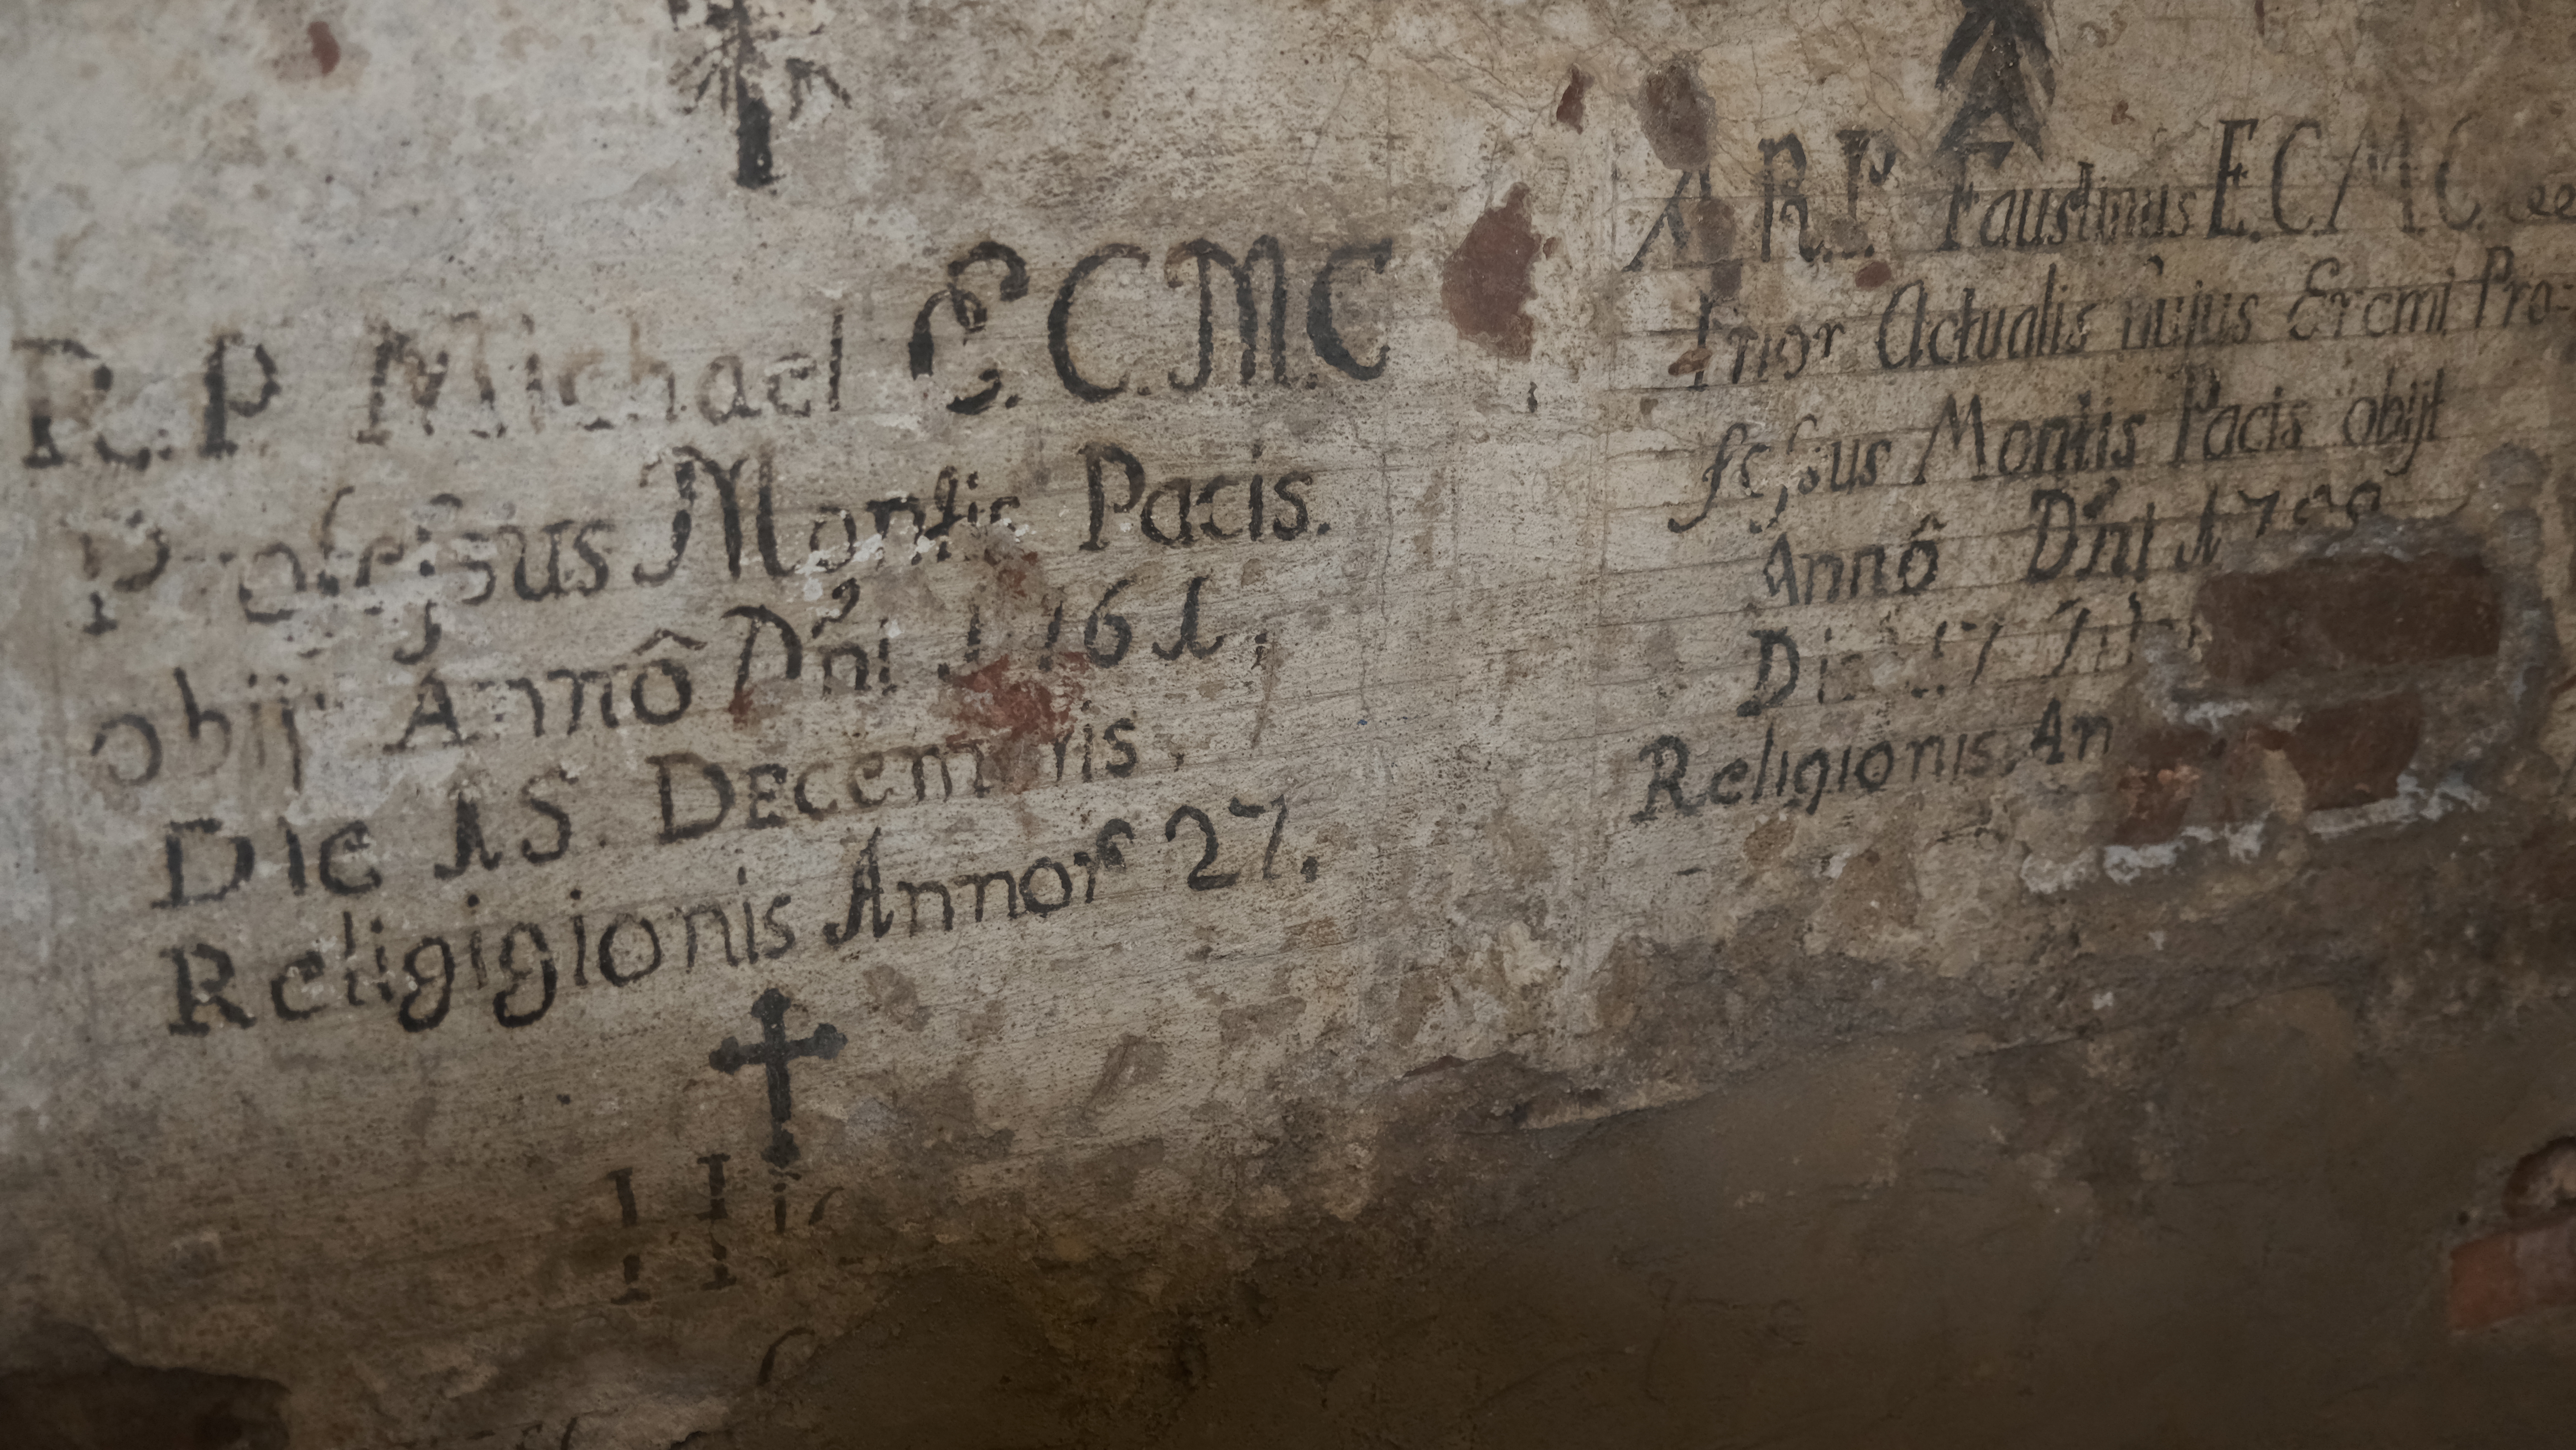 R. P. Michael E.C.M.C
Profeſsus Montis Pacis.
obijt Annô Dñi 1761,
Die 15. Decembris.
Religigionis Annor 27.
Hic
A R.P. Faustinus E.C.M.C.
Prior Actualis hujus Eremi Pro=
feſsus Montis Pacis obijt
Annô Dñi
Die
Religionis. An